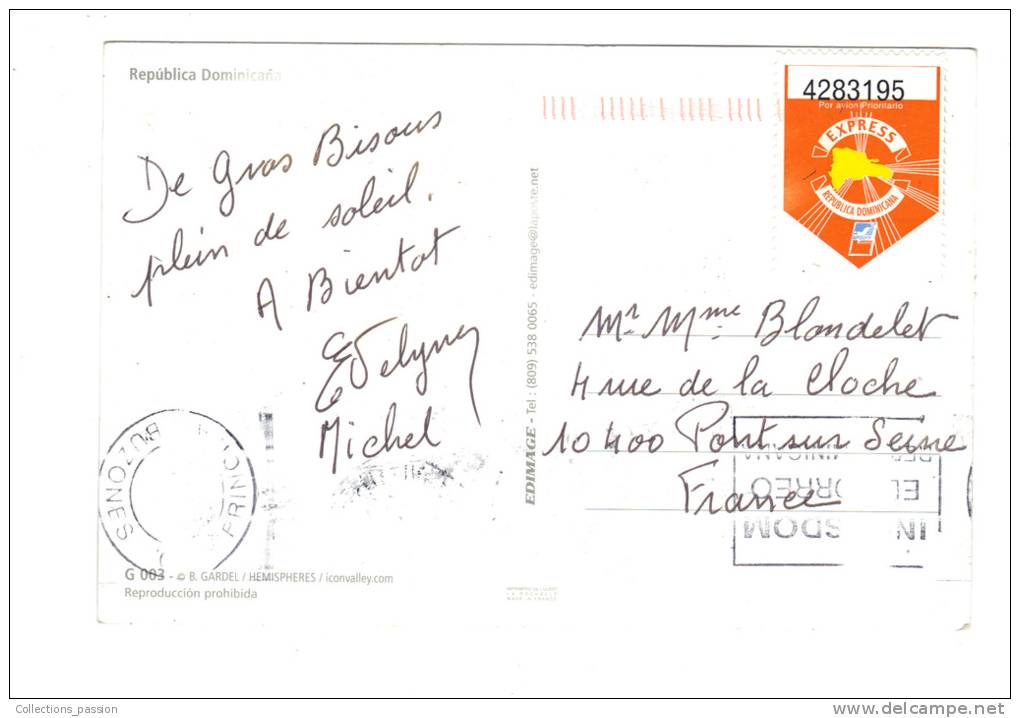 República Dominicana
De Gros Bisous
plein de soleil.
A Bientot
Evelyne
Michel
BUZONES
PRINC
G 003 - © B. GARDEL / HEMISPHERES / iconvalley.com
Reproducción prohibida
EDIMAGE - Tel : (809) 538 0065 - edimage@laposte.net
4283195
Por avion Prioritario
EXPRESS
REPUBLICA DOMINICANA
Mr. Mme. Blondelet
4 rue de la Cloche
10400 Pont sur Seine
France
EL
IN
SDOM
Collections_passion
http://www.delcampe.net